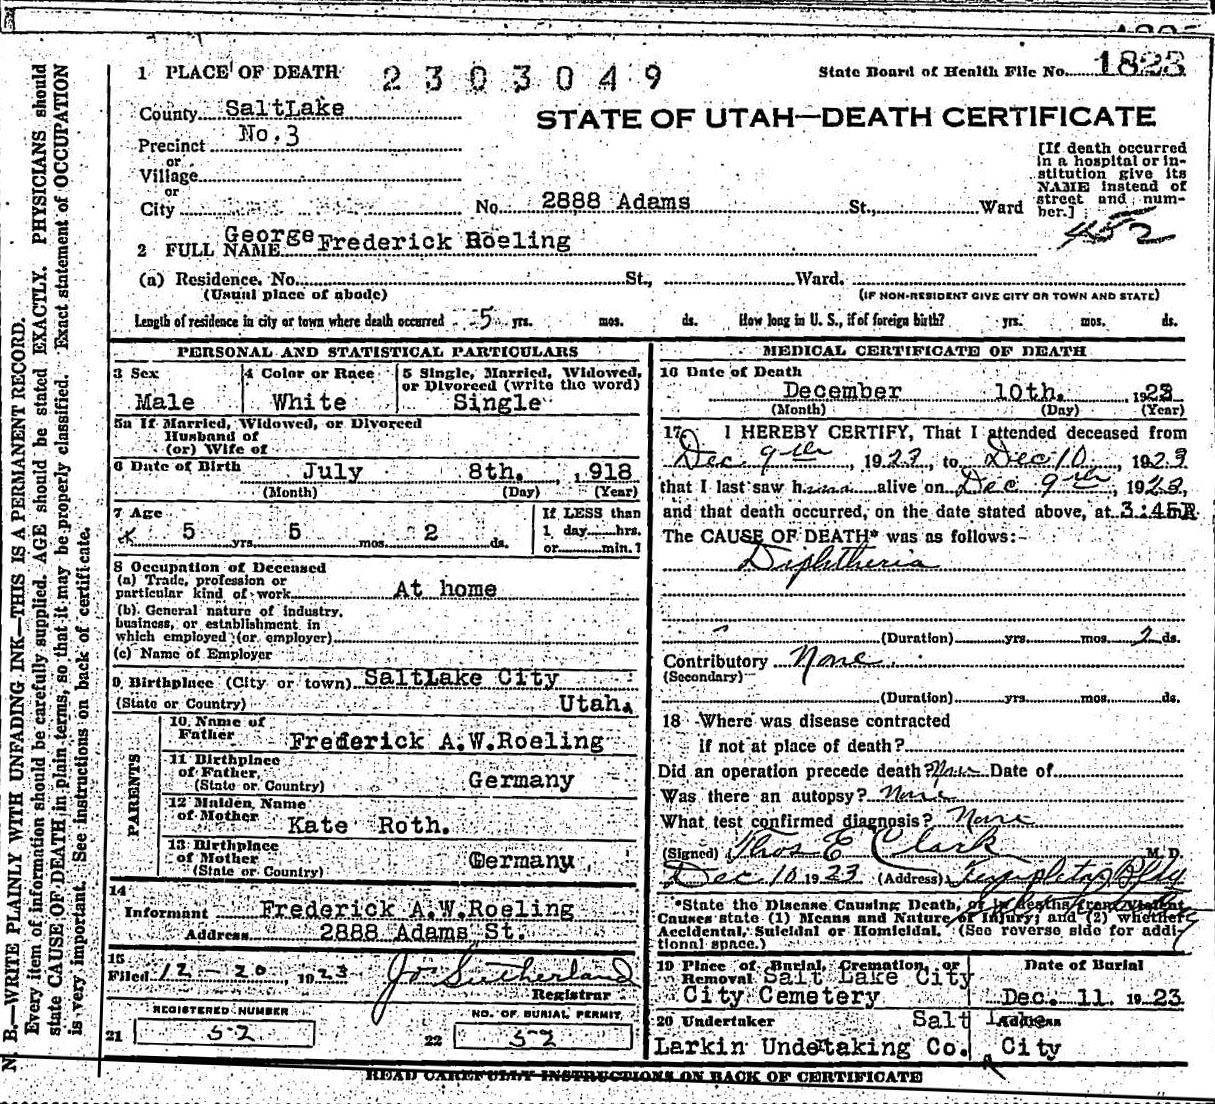 1 PLACE OF DEATH
2303049
State Board of Health File No. 1823
County SaltLake
STATE OF UTAH—DEATH CERTIFICATE
Precinct No.3
or
Village
or
City No. 2888 Adams St., Ward
[If death occurred
in a hospital or in-
stitution give its
NAME instead of
street and num-
ber.]
452
2 FULL NAME George Frederick Roeling
(a) Residence. No. St., Ward.
(Usual place of abode) (IF NON-RESIDENT GIVE CITY OR TOWN AND STATE)
Length of residence in city or town where death occurred 5 yrs. mos. ds. How long in U. S., if of foreign birth? yrs. mos. ds.
PERSONAL AND STATISTICAL PARTICULARS
3 Sex Male
4 Color or Race White
5 Single, Married, Widowed,
or Divorced (write the word)
Single
5a If Married, Widowed, or Divorced
Husband of
(or) Wife of
6 Date of Birth July 8th. , 1918
(Month) (Day) (Year)
7 Age 5 yrs. 5 mos. 2 ds.
If LESS than
1 day hrs.
or min.?
8 Occupation of Deceased
(a) Trade, profession or
particular kind of work At home
(b) General nature of industry,
business, or establishment in
which employed (or employer)
(c) Name of Employer
9 Birthplace (City or town) SaltLake City
(State or Country) Utah.
PARENTS
10 Name of
Father Frederick A.W.Roeling
11 Birthplace
of Father
(State or Country) Germany
12 Maiden Name
of Mother Kate Roth.
13 Birthplace
of Mother
(State or Country) Germany
14
Informant Frederick A.W.Roeling
Address 2888 Adams St.
15
Filed 12-20, 1923 Jos Sutherland
Registrar
REGISTERED NUMBER
21 52
NO. OF BURIAL PERMIT
22 52
MEDICAL CERTIFICATE OF DEATH
16 Date of Death
December 10th. 1923
(Month) (Day) (Year)
17 I HEREBY CERTIFY, That I attended deceased from
Dec 9th, 1923, to Dec 10, 1923
that I last saw him alive on Dec 9th, 1923,
and that death occurred, on the date stated above, at 3:45P
The CAUSE OF DEATH* was as follows:-
Diphtheria
(Duration) yrs. mos. 2 ds.
Contributory None
(Secondary)
(Duration) yrs. mos. ds.
18 Where was disease contracted
if not at place of death?
Did an operation precede death? None Date of
Was there an autopsy? None
What test confirmed diagnosis? None
(Signed) Thos E Clark M. D.
Dec 10 1923 (Address)
*State the Disease Causing Death, or in deaths from Violent
Causes state (1) Means and Nature of Injury; and (2) whether
Accidental, Suicidal or Homicidal. (See reverse side for addi-
tional space.)
19 Place of Burial, Cremation, or
Removal Salt Lake City
City Cemetery
Date of Burial
Dec. 11 1923
20 Undertaker
Larkin Undetaking Co.
Address
Salt Lake
City
READ CAREFULLY INSTRUCTIONS ON BACK OF CERTIFICATE
N. B.—WRITE PLAINLY WITH UNFADING INK—THIS IS A PERMANENT RECORD.
Every item of information should be carefully supplied. AGE should be stated EXACTLY. PHYSICIANS should
state CAUSE OF DEATH in plain terms, so that it may be properly classified. Exact statement of OCCUPATION
is very important. See instructions on back of certificate.